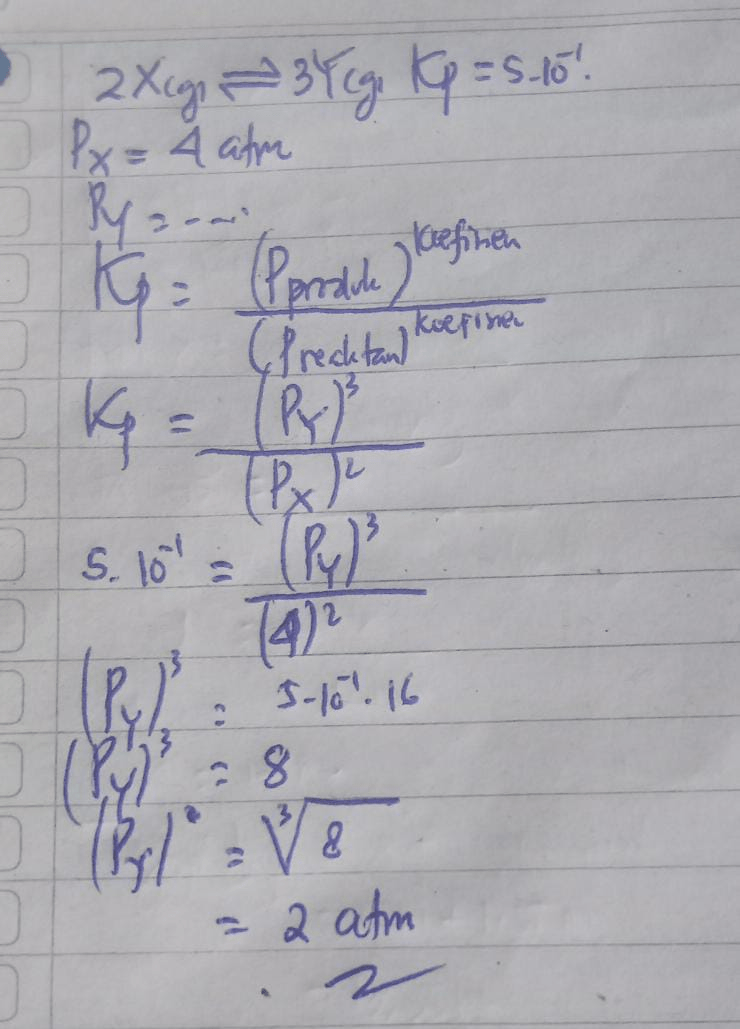 2X(g) ⇌ 3Y(g) Kp = 5-10⁻¹.
Px = 4 atm
Py = ----
Kp = (Pproduk)ᵏᵒᵉᶠⁱˢⁱᵉⁿ / (Preaktan)ᵏᵒᵉᶠⁱˢⁱᵉⁿ
Kp = (PY)³ / (PX)²
5. 10⁻¹ = (PY)³ / (4)²
(PY)³ = 5-10⁻¹. 16
(PY)³ = 8
(PY) = ³√8
= 2 atm